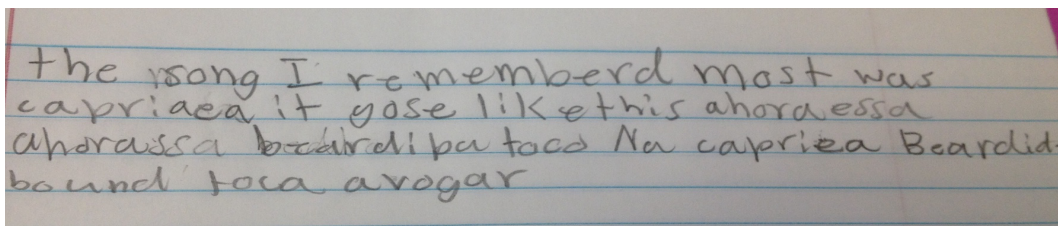 the song I rememberd most was
capriaea it gose like this ahoraessa
ahorassa bcairdiba taco Na capriea Beardid
bound toca avogar